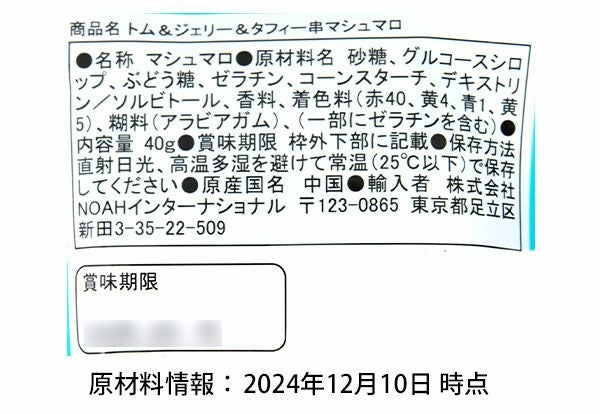 商品名 トム＆ジェリー＆タフィー串マシュマロ
●名称 マシュマロ●原材料名 砂糖、グルコースシロ
ップ、ぶどう糖、ゼラチン、コーンスターチ、デキストリ
ン／ソルビトール、香料、着色料(赤40、黄4、青1、黄
5)、糊料(アラビアガム)、(一部にゼラチンを含む)●
内容量 40g●賞味期限 枠外下部に記載●保存方法
直射日光、高温多湿を避けて常温(25℃以下)で保存
してください●原産国名 中国●輸入者 株式会社
NOAHインターナショナル 〒123-0865 東京都足立区
新田3-35-22-509
賞味期限
原材料情報：2024年12月10日 時点